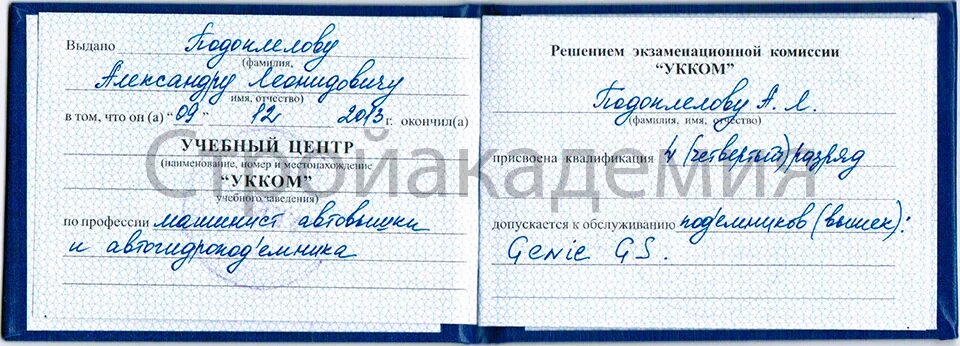 Выдано Подоплелову
(фамилия,
Александру Леонидовичу
имя, отчество)
в том, что он (а) "09" 12 2013 г. окончил(а)
УЧЕБНЫЙ ЦЕНТР
(наименование, номер и местонахождение
"УККОМ"
учебного заведения)
по профессии машинист автовышки
и автогидропод'емника
Решением экзаменационной комиссии
"УККОМ"
Подоплелову А. Л.
(фамилия, имя, отчество)
присвоена квалификация 4 (четвертый) разряд
допускается к обслуживанию под'емников (вышек):
Genie GS.
Стройакадемия